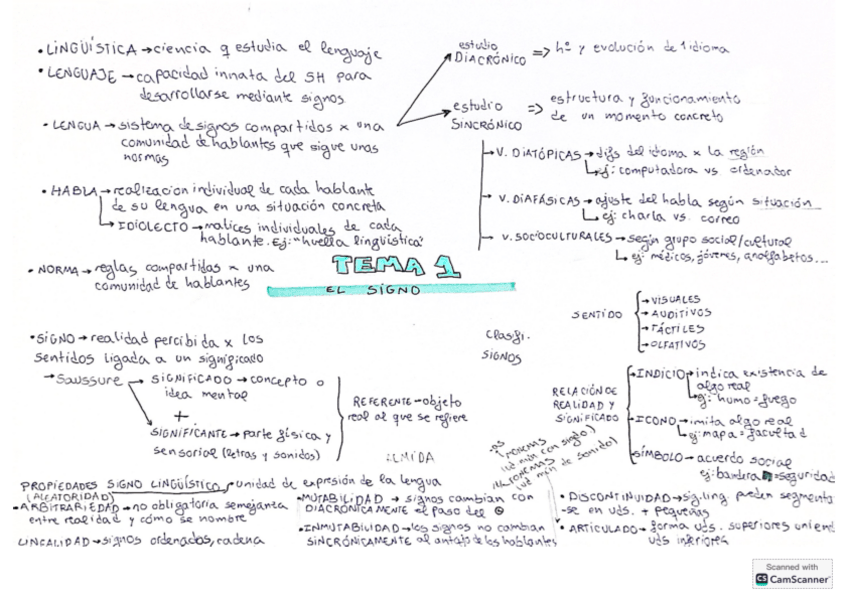 • LINGÜÍSTICA → ciencia q estudia el lenguaje
• LENGUAJE → capacidad innata del SH para
desarrollarse mediante signos
• LENGUA → sistema de signos compartidos x una
comunidad de hablantes que sigue unas
normas
estudio
DIACRÓNICO => hª y evolución de 1 idioma
estudio
SINCRÓNICO => estructura y funcionamiento
de un momento concreto
→ V. DIATÓPICAS → difs del idioma x la región
ej: computadora vs ordenador
→ V. DIAFÁSICAS → ajuste del habla según situación
ej: charla vs. correo
→ V. SOCIOCULTURALES → según grupo social/cultural
ej: médicos, jóvenes, analfabetos...
• HABLA → realización individual de cada hablante
de su lengua en una situación concreta
→ IDIOLECTO → matices individuales de cada
hablante. Ej: "huella lingüística"
• NORMA → reglas compartidas x una
comunidad de hablantes
TEMA 1
EL SIGNO
• SIGNO → realidad percibida x los
sentidos ligada a un significado
→ Saussure → SIGNIFICADO → concepto o
idea mental
+
SIGNIFICANTE → parte física y
sensorial (letras y sonidos)
REFERENTE → objeto
real al que se refiere
clasifi.
SIGNOS
SENTIDO
→ VISUALES
→ AUDITIVOS
→ TÁCTILES
→ OLFATIVOS
RELACIÓN DE
REALIDAD Y
SIGNIFICADO
→ INDICIO → indica existencia de
algo real
ej: humo = fuego
→ ICONO → imita algo real
ej: mapa = facultad
SÍMBOLO → acuerdo social
ej: bandera = seguridad
PROPIEDADES SIGNO LINGÜÍSTICO → unidad de expresión de la lengua
(ALEATORIDAD)
• ARBITRARIEDAD → no obligatoria semejanza
entre realidad y cómo se nombre
LINEALIDAD → signos ordenados, cadena
• MUTABILIDAD → signos cambian con
DIACRÓNICAMENTE el paso del
• INMUTABILIDAD → los signos no cambian
SINCRÓNICAMENTE al antojo de los hablantes
(ud mín con signdo.)
(ud mín de sonido)
• DISCONTINUIDAD → sig. ling. pueden segmenta
-se en uds. + pequeñas
• ARTICULADO → forma uds. superiores uniend
uds inferiores
Scanned with
CS CamScanner